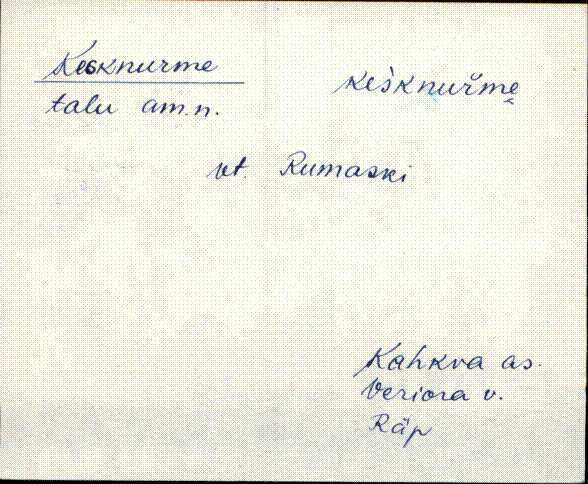 Kesknurme
keśknuŕmẹ
talu am.n.
vt. Rumaski
Kahkva as.
Veriora v.
Räp